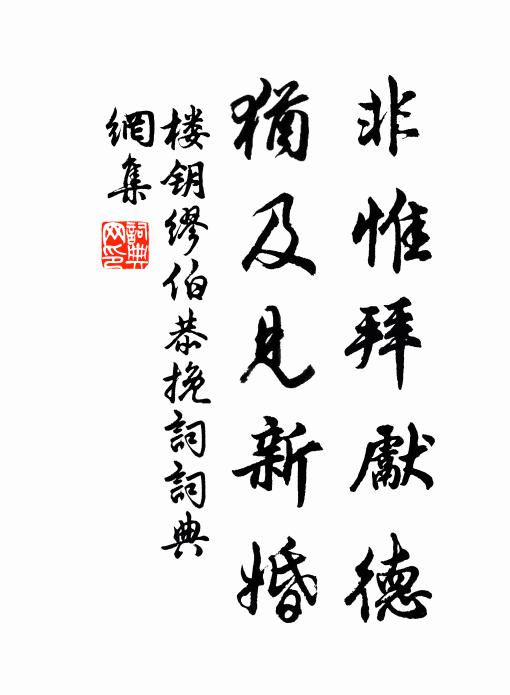 非惟拜獻德
猶及見新婚
楼钥缪伯恭挽詞詞典
網集
詞典网印